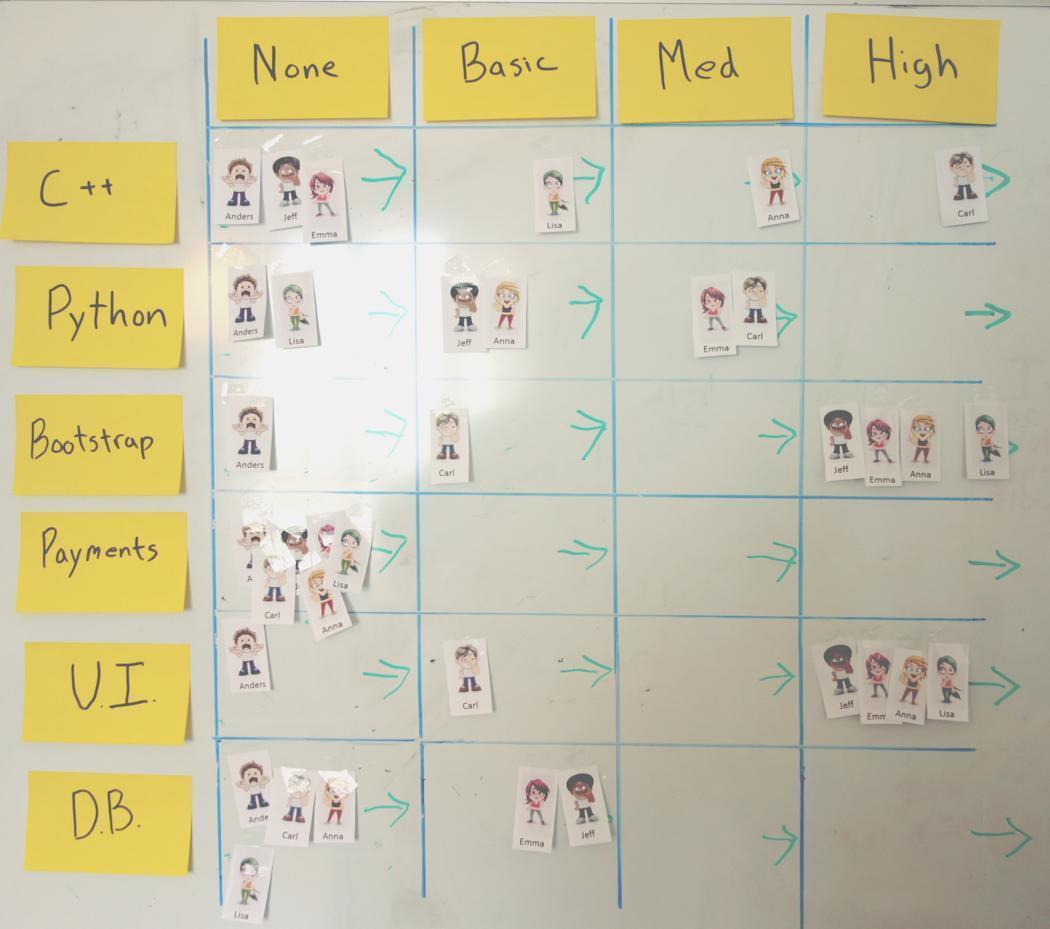 None Basic Med High
C++
Anders Jeff Emma Lisa Anna Carl
Python
Anders Lisa Jeff Anna Emma Carl
Bootstrap
Anders Carl Jeff Emma Anna Lisa
Payments
Carl Lisa Anna
U.I.
Anders Carl Jeff Emm Anna Lisa
D.B.
Ande Carl Anna Emma Jeff
Lisa